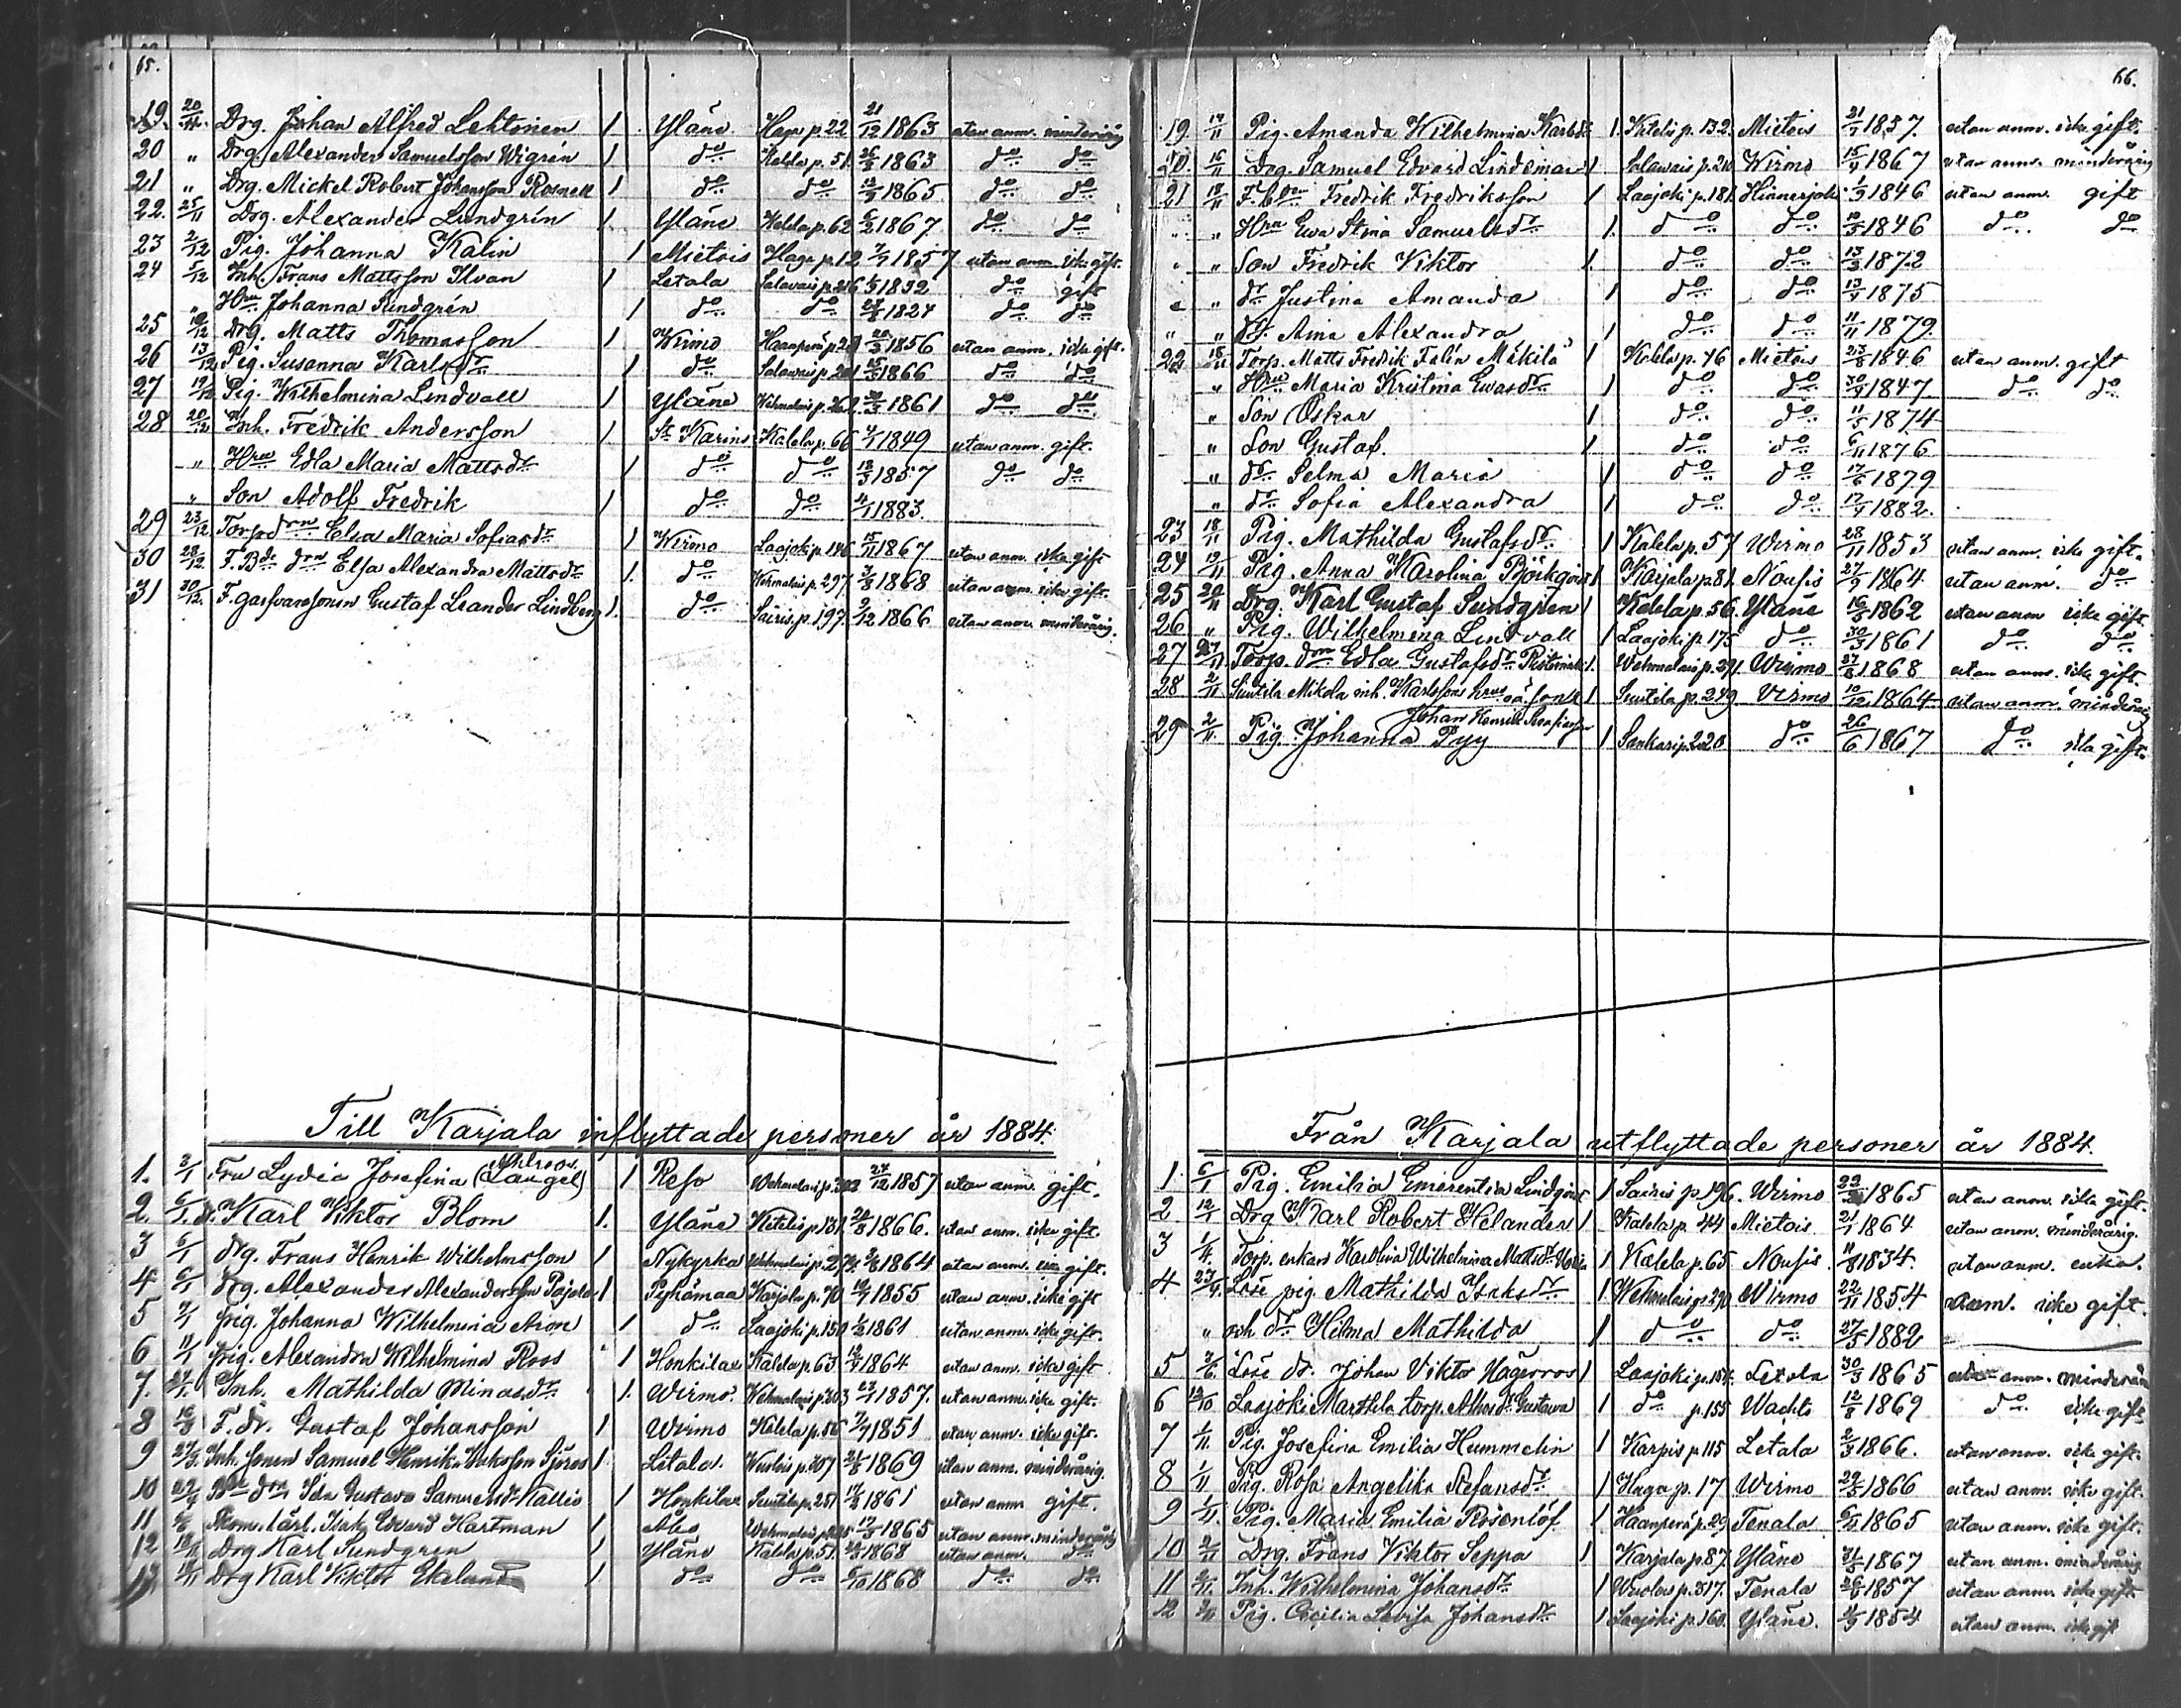 65.
19. 20/11 Drg. Johan Alfred Lehtonen 1 Yläne Haga p. 22 21/12 1863 utan anm. minderårig
20 " Drg. Alexander Samuelsson Wigrén 1 do Kalela p. 51 26/2 1863 do do
21 " Drg. Mickel Robert Johansson Rosnell 1 do do 1865 do do
22. 25/11 Drg. Alexander Lundgrén 1 Yläne Kalela p. 62 1867 do do
23 2/12 Pig. Johanna Kalin 1 Mietois Haga p. 12 7/7 1857 utan anm. icke gift.
24 5/12 Inh. Frans Mattsson Ilvan 1 Letala Salavais p. 216 1832 do gift
" Hru Johanna Sundgrén 1 do do 1824 do do
25 10/12 Drg. Matts Thomasson 1 Wirmo Haanperä p. 29 20/3 1856 utan anm. icke gift.
26 13/12 Pig. Susanna Karlsdr 1 do Salavais p. 201 1866 do do
27 19/12 Pig. Wilhelmina Lindvall 1 Yläne Wehmalais p. 262 30/3 1861 do do
28 20/12 Inh. Fredrik Andersson 1 St Karins Kalela p. 66 4/1 1849 utan anm. gift.
" Hru Edla Maria Mattsdr 1 do do 13/3 1857 do do
" Son Adolf Fredrik 1 do do 4/1 1883.
29 23/12 Torp drn Elsa Maria Sofiasdr 1 Wirmo Laajoki p. 196 15/11 1867 utan anm. icke gift
30 28/12 F. Bde drn Elsa Alexandra Mattsdr 1. do Wehmalais p. 297 3/3 1868 utan anm. icke gift.
31 30/12. F. garfvaresonen Gustaf Leander Lindberg 1. do Säiris p. 197. 9/12 1866 utan anm. minderårig.
Till Karjala inflyttade personer år 1884.
1. 3/1 Fru Lydia Josefina (Langel) Ahlroos 1 Reso Wehmalais p. 302 27/12 1857 utan anm. gift.
2. 5/1 dr. Karl Viktor Blom 1. Yläne Ketelis p. 131 1866. utan anm. icke gift.
3 5/1 drg. Frans Henrik Wilhelmsson 1 Nykyrka Wehmalais 1864 utan anm. icke gift.
4 drg. Alexander Alexandersson Pajala 1 Pyhämaa Karjala p. 70 10/7 1855 utan anm. icke gift
5 7/1 pig. Johanna Wilhelmina Aron 1 do Laajoki p. 150 1/2 1861 utan anm. icke gift.
6 11/1 pig. Alexandra Wilhelmina Roos 1 Honkilax Kalela p. 63 12/9 1864 utan anm. icke gift
7. Inh. Mathilda Minasdr 1. Wirmo. Wehmalais p. 303 23/1 1857. utan anm. icke gift.
8 F. dr. Gustaf Johansson 1 Wirmo Kalela p. 56 7/7 1851 utan anm. icke gift.
9 Inh. sonen Samuel Henrik Isaksson Sjöros 1 Letala. p. 307 1869 utan anm. minderårig.
10 Bde drn Ida Gustava Samuelsdr Kallio 1 Honkilax Suutila p. 251 1861 utan anm gift.
11 Skom. lärl. Isak Edvard Hartman 1 Åbo Wehmalais 1865 utan anm. minderårig
12 Drg Karl Sundgren 1 Yläne Kalela p. 51. 1868 utan anm. do
13 Drg Karl Viktor Ekelund 1 do do 1868 do do
66.
19. 14/11 Pig. Amanda Wilhelmina Karlsdr 1. Ketelis p. 132. Mietois 21/7 1857. utan anm. icke gift.
20. 16/11 Drg. Samuel Edvard Lindeman 1 Salavais p. 210 Wirmo 15/4 1867 utan anm. minderårig
21 18/11 F. Bon Fredrik Fredriksson 1 Laajoki p. 181. Hinnerjoki 1/3 1846 utan anm. gift
" " Hru Ewa Stina Samuelsdr 1. do do 10/5 1846 do do
" " Son Fredrik Viktor 1. do do 13/3 1872
" " dr Justina Amanda 1 do do 13/4 1875
" " dr. Aina Alexandra 1 do do 11/11 1879.
22 18/11 Torp. Matts Fredrik Falén Mäkilä 1 Kalela p. 46 Mietois 23/8 1846 utan anm. gift
" Hru Maria Kristina Ewasdr 1 do do 30/9 1847 do do
" Son Oskar 1 do do 11/5 1874
" Son Gustaf. 1 do do 6/11 1876
" dr Selma Maria 1 do do 17/6 1879
" dr Sofia Alexandra 1 do do 17/4 1882.
23 18/11 Pig. Mathilda Gustafsdr 1 Kalela p. 57 Wirmo 28/11 1853 utan anm. icke gift.
24 19/11 Pig. Anna Karolina Björkqvist 1 Karjala p. 81. Nousis 27/9 1864 utan anm. do
25 20/11 Drg. Karl Gustaf Sundgren 1 Kalela p. 56. Yläne 16/3 1862 utan anm icke gift
26 " Pig. Wilhelmina Lindvall 1 Laajoki p. 175 do 30/3 1861 do do
27 27/11 Torp. drn Edla Gustafsdr 1. Wehmalais p. 291. Wirmo 27/8 1868 utan anm. icke gift.
28 2/11 Suutila Mikola inh. Karlssons hrus oä sonen Johan Henrik Serafiasson 1 Suutila p. 249 Virmo 10/12 1864 utan anm. minderårig
29 2/11. Pig. Johanna Pyy 1 Sankari p. 220 do 26/6 1867 do icke gift.
Från Karjala utflyttade personer år 1884.
1. 6/1 Pig. Emilia Emerentia Lindqvist 1 Sairis p. 196. Wirmo 1865 utan anm. icke gift.
2 12/1 Drg Karl Robert Helander 1 Kalela p. 44 Mietois 21/1 1864 utan anm. minderårig.
3 1/4. Torp. enkan Karolina Wilhelmina Mattsdr 1 Kalela p. 65 Nousis 11/8 1834. utan anm. enka.
4 23/4. Löse pig. Mathilda Isaksdr 1 Wehmalais p. 270 Wirmo 22/11 1854 anm. icke gift.
" och dr Hilma Mathilda 1 do do 27/5 1882
5 Löse dr. Johan Viktor Hagerroos 1 Laajoki p. 154. Letala 30/3 1865 utan anm. minderårig
6 Laajoki Marttila torp. Gustava 1 do p. 155 Wachto 12/8 1869 do icke gift
7 1/11. Pig. Josefina Emilia Hummelin 1 Karpis p. 115 Letala 2/3 1866. utan anm. icke gift.
8 1/11 Pig. Rosa Angelika Stefansdr 1 Haga p. 17 Wirmo 29/5 1866 utan anm. icke gift.
9 Pig. Maria Emilia Rosenlöf 1 Haanperä p. 29 Tenala 1865 utan anm. icke gift.
10 Drg. Frans Viktor Seppä 1 Karjala p. 87. Yläne 1867 utan anm. minderårig
11 Inh. Wilhelmina Johansdr 1 p. 317. Tenala 1857 utan anm. icke gift
12 Pig. Cecilia Lovisa Johansdr 1 Laajoki p. 160. Yläne. 1854 utan anm. icke gift